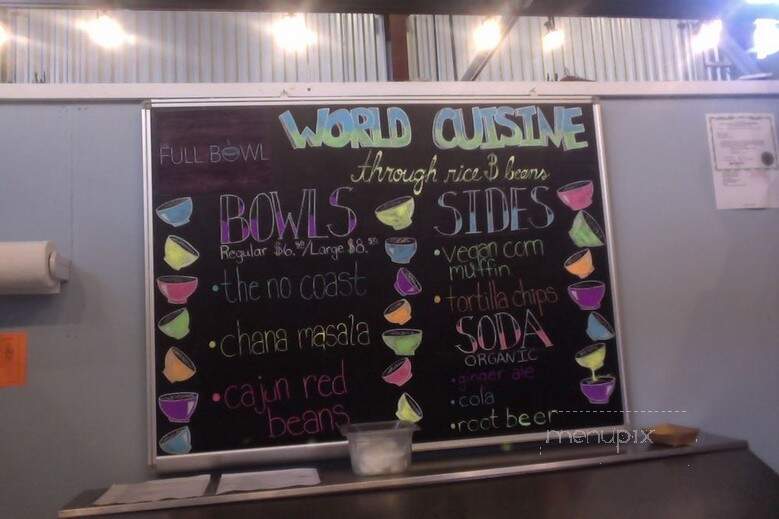 FULL BOWL
WORLD CUISINE
through rice & beans
BOWLS
Regular $6.50/Large $8.50
• the no coast
• chana masala
• cajun red
beans
SIDES
• vegan corn
muffin
• tortilla chips
SODA
ORGANIC
• ginger ale
• cola
• root beer
menupix